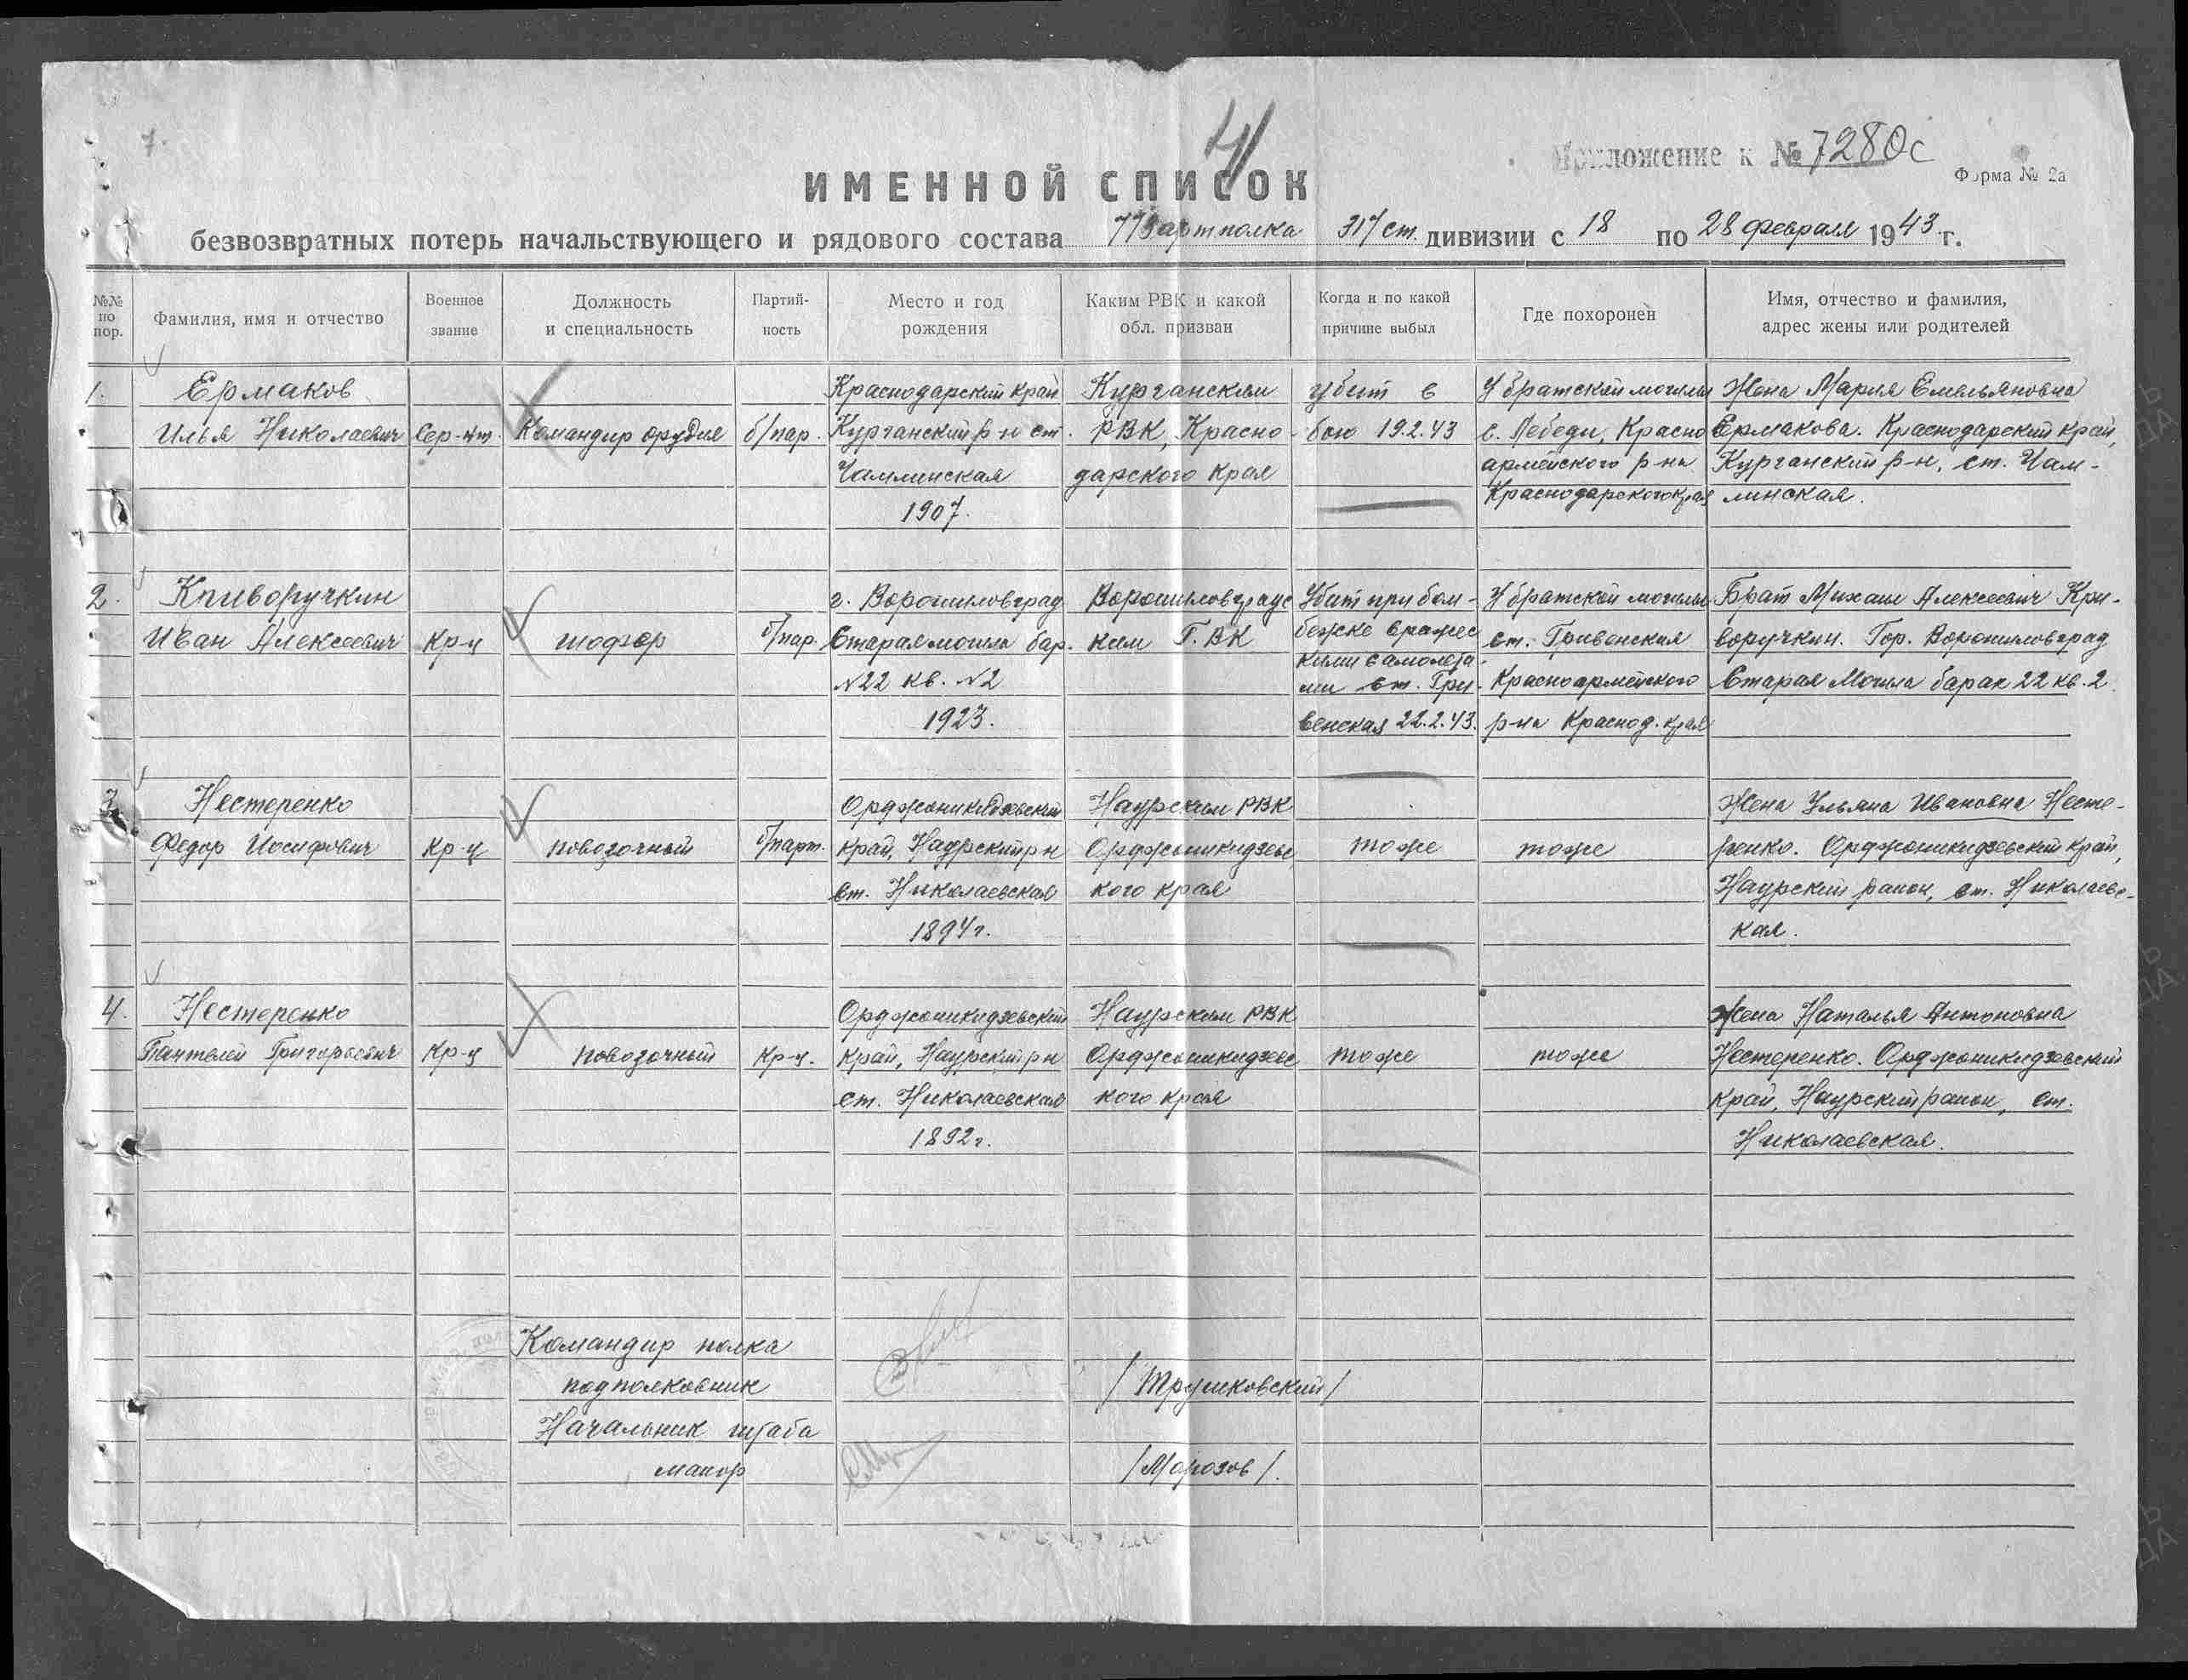 7.
4
Приложение к № 7280с
Форма № 2а
ИМЕННОЙ СПИСОК
безвозвратных потерь начальствующего и рядового состава 773 артполка 317 ст. дивизии с 18 по 28 февраля 1943 г.
№№ по пор.
Фамилия, имя и отчество
Военное звание
Должность и специальность
Партий-ность
Место и год рождения
Каким РВК и какой обл. призван
Когда и по какой причине выбыл
Где похоронен
Имя, отчество и фамилия, адрес жены или родителей
1. Ермаков Краснодарский край Курганским убит в У братской могилы Жена Мария Емельяновна
Илья Николаевич Сер-нт. Командир орудия б/пар. Курганский р-н ст. РВК, Красно- бою 19.2.43 с. Лебеди, Красно Ермакова. Краснодарский край,
Чамлинская дарского края армейского р-на Курганский р-н, ст. Чам-
1907. Краснодарского края линская.
2. Криворучкин г. Ворошиловград Ворошиловградс Убит при бом- У братской могилы Брат Михаил Алексеевич Кри-
Иван Алексеевич Кр-ц шофер б/пар. Старая могила бар. ким Г.ВК бежке вражес ст. Гривенская воручкин. Гор. Ворошиловград
№22 кв. №2 кими самолета-
ми ст. Гри- Красноармейского Старая Могила барак 22 кв. 2.
1923. венская 22.2.43. р-на Краснод. края
3 Нестеренко Орджоникидзевский Наурским РВК Жена Ульяна Ивановна Несте-
Федор Иосифович Кр-ц повозочный б/парт. край, Наурский р-н Орджоникидзевс тоже тоже ренко. Орджоникидзевский край,
ст. Николаевская кого края Наурский район, ст. Николаевс-
1894г. кая.
4. Нестеренко Орджоникидзевский Наурским РВК Жена Наталья Антоновна
Пантелей Григорьевич Кр-ц повозочный Кр-ц. край, Наурский р-н Орджоникидзевс тоже тоже Нестеренко. Орджоникидзевский
ст. Николаевская кого края край, Наурский район, ст.
1892г. Николаевская.
Командир полка
подполковник /Трушковский/
Начальник штаба
майор /Морозов/.